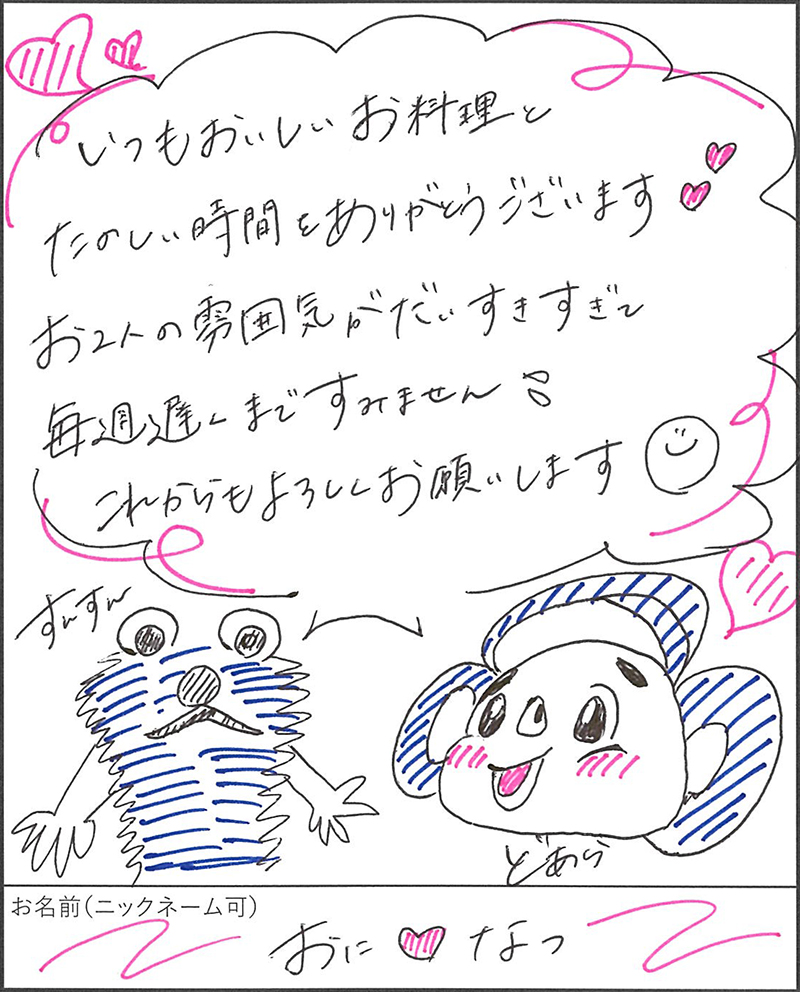 いつもおいしいお料理と
たのしい時間をありがとうございます
お2人の雰囲気がだいすきすぎて
毎週遅くまですみません
これからもよろしくお願いします
すいすい
どあら
お名前(ニックネーム可)
おに♥なつ